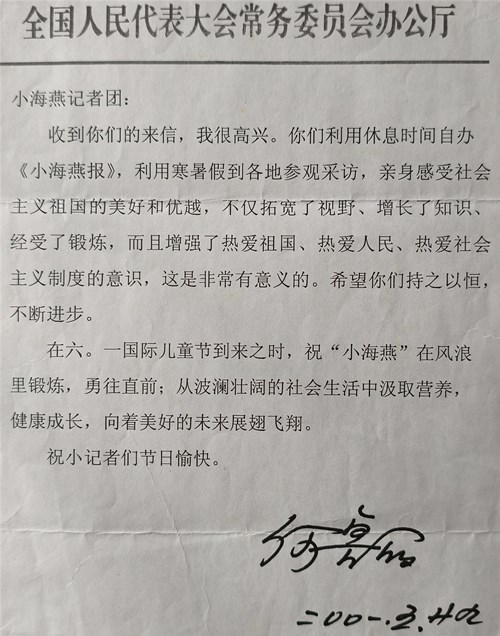 全国人民代表大会常务委员会办公厅
小海燕记者团：
收到你们的来信，我很高兴。你们利用休息时间自办
《小海燕报》，利用寒暑假到各地参观采访，亲身感受社会
主义祖国的美好和优越，不仅拓宽了视野、增长了知识、
经受了锻炼，而且增强了热爱祖国、热爱人民、热爱社会
主义制度的意识，这是非常有意义的。希望你们持之以恒，
不断进步。
在六。一国际儿童节到来之时，祝“小海燕”在风浪
里锻炼，勇往直前；从波澜壮阔的社会生活中汲取营养，
健康成长，向着美好的未来展翅飞翔。
祝小记者们节日愉快。
二00一.五.廿九